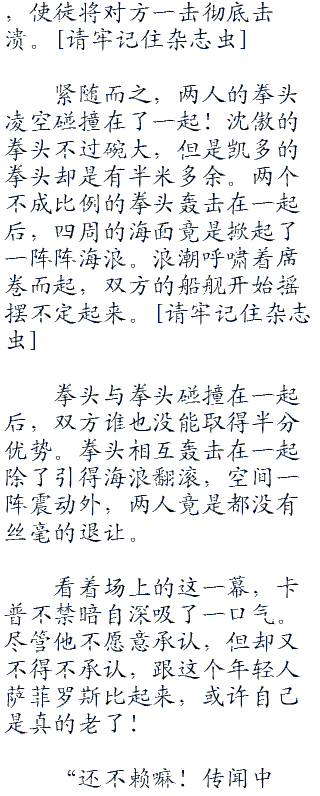 ，使徒将对方一击彻底击
溃。[请牢记住杂志虫]
紧随而之，两人的拳头
凌空碰撞在了一起！沈傲的
拳头不过碗大，但是凯多的
拳头却是有半米多余。两个
不成比例的拳头轰击在一起
后，四周的海面竟是掀起了
一阵阵海浪。浪潮呼啸着席
卷而起，双方的船舰开始摇
摆不定起来。[请牢记住杂志
虫]
拳头与拳头碰撞在一起
后，双方谁也没能取得半分
优势。拳头相互轰击在一起
除了引得海浪翻滚，空间一
阵震动外，两人竟是都没有
丝毫的退让。
看着场上的这一幕，卡
普不禁暗自深吸了一口气。
尽管他不愿意承认，但却又
不得不承认，跟这个年轻人
萨菲罗斯比起来，或许自己
是真的老了！
“还不赖嘛！传闻中